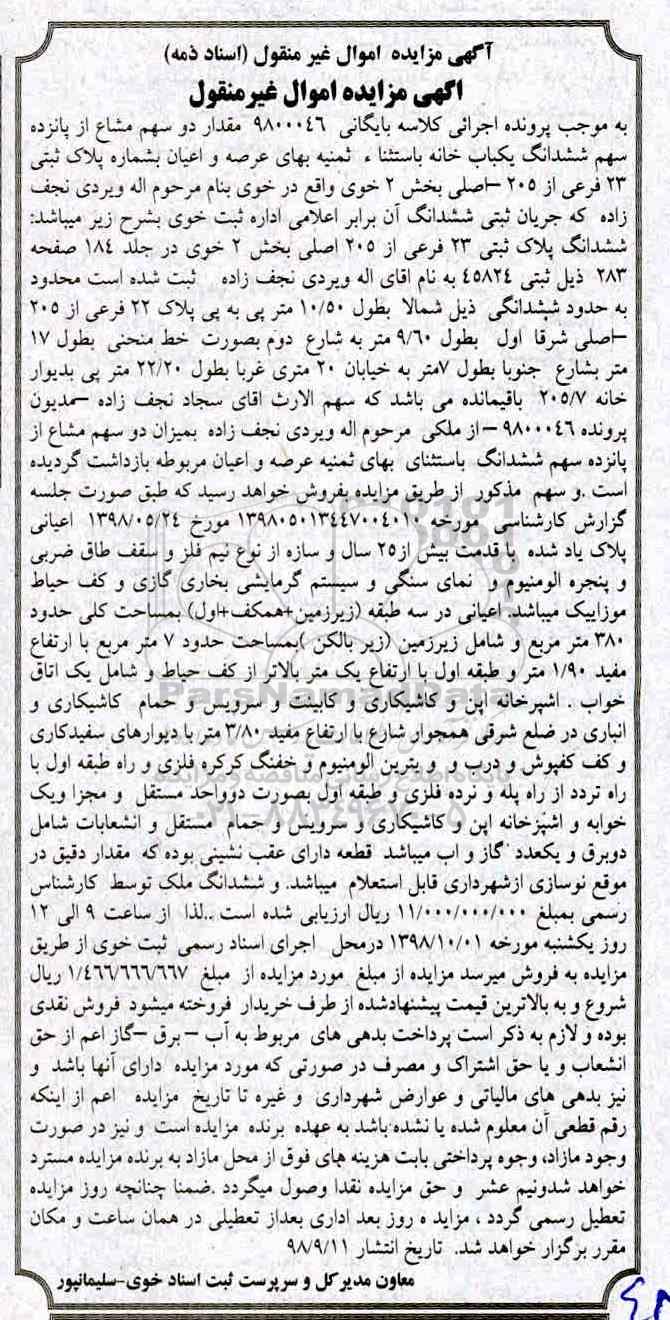 آگهی مزایده اموال غیر منقول (اسناد ذمه)
آگهی مزایده اموال غیرمنقول
به موجب پرونده اجرائی کلاسه بایگانی ۹۸۰۰۰۴۶ مقدار دو سهم مشاع از پانزده
سهم ششدانگ یکباب خانه باستثنا ء ثمنیه بهای عرصه و اعیان بشماره پلاک ثبتی
۲۳ فرعی از ۲۰۵ –اصلی بخش ۲ خوی واقع در خوی بنام مرحوم اله ویردی نجف
زاده که جریان ثبتی ششدانگ آن برابر اعلامی اداره ثبت خوی بشرح زیر میباشد:
ششدانگ پلاک ثبتی ۲۳ فرعی از ۲۰۵ اصلی بخش ۲ خوی در جلد ۱۸۴ صفحه
۲۸۳ ذیل ثبتی ۴۵۸۲۴ به نام اقای اله ویردی نجف زاده ثبت شده است محدود
به حدود ششدانگی ذیل شمالا بطول ۱۰/۵۰ متر پی به پی پلاک ۲۲ فرعی از ۲۰۵
–اصلی شرقا اول بطول ۹/۶۰ متر به شارع دوم بصورت خط منحنی بطول ۱۷
متر بشارع جنوبا بطول ۷متر به خیابان ۲۰ متری غربا بطول ۲۲/۲۰ متر پی بدیوار
خانه ۲۰۵/۷ باقیمانده می باشد که سهم الارث اقای سجاد نجف زاده –مدیون
پرونده ۹۸۰۰۰۴۶ – از ملکی مرحوم اله ویردی نجف زاده بمیزان دو سهم مشاع از
پانزده سهم ششدانگ باستثنای بهای ثمنیه عرصه و اعیان مربوطه بازداشت گردیده
است .و سهم مذکور از طریق مزایده بفروش خواهد رسید که طبق صورت جلسه
گزارش کارشناسی مورخه ۱۳۹۸۰۵۰۱۳۴۴۷۰۰۴۰۱۰ مورخ ۱۳۹۸/۰۵/۲۴ اعیانی
پلاک یاد شده با قدمت بیش از۲۵ سال و سازه از نوع نیم فلز و سقف طاق ضربی
و پنجره الومنیوم و نمای سنگی و سیستم گرمایشی بخاری گازی و کف حیاط
موزاییک میباشد. اعیانی در سه طبقه (زیرزمین+همکف+اول) بمساحت کلی حدود
۳۸۰ متر مربع و شامل زیرزمین (زیر بالکن )بمساحت حدود ۷ متر مربع با ارتفاع
مفید ۱/۹۰ متر و طبقه اول با ارتفاع یک متر بالاتر از کف حیاط و شامل یک اتاق
خواب . اشپرخانه اپن و کاشیکاری و کابینت و سرویس و حمام کاشیکاری و
انباری در ضلع شرقی همجوار شارع با ارتفاع مفید ۳/۸۰ متر با دیوارهای سفیدکاری
و کف کفپوش و درب و و یترین الومنیوم و خفنگ کرکره فلزی و راه طبقه اول با
راه تردد از راه پله و نرده فلزی و طبقه اول بصورت دوواحد مستقل و مجزا ویک
خوابه و اشپزخانه اپن و کاشیکاری و سرویس و حمام مستقل و انشعابات شامل
دوبرق و یکعدد گاز و اب میباشد قطعه دارای عقب نشینی بوده که مقدار دقیق در
موقع نوسازی ازشهرداری قابل استعلام میباشد. و ششدانگ ملک توسط کارشناس
رسمی بمبلغ ۱۱/۰۰۰/۰۰۰/۰۰۰ ریال ارزیابی شده است ..لذا از ساعت ۹ الی ۱۲
روز یکشنبه مورخه ۱۳۹۸/۱۰/۰۱ درمحل اجرای اسناد رسمی ثبت خوی از طریق
مزایده به فروش میرسد مزایده از مبلغ مورد مزایده از مبلغ ۱/۴۶۶/۶۶۶/۶۶۷ ریال
شروع و به بالاترین قیمت پیشنهادشده از طرف خریدار فروخته میشود فروش نقدی
بوده و لازم به ذکر است پرداخت بدهی های مربوط به آب – برق –گاز اعم از حق
انشعاب و یا حق اشتراک و مصرف در صورتی که مورد مزایده دارای آنها باشد و
نیز بدهی های مالیاتی و عوارض شهرداری و غیره تا تاریخ مزایده اعم از اینکه
رقم قطعی آن معلوم شده یا نشده باشد به عهده برنده مزایده است و نیز در صورت
وجود مازاد، وجوه پرداختی بابت هزینه های فوق از محل مازاد به برنده مزایده مسترد
خواهد شدونیم عشر و حق مزایده نقدا وصول میگردد .ضمنا چنانچه روز مزایده
تعطیل رسمی گردد ، مزاید ه روز بعد اداری بعداز تعطیلی در همان ساعت و مکان
مقرر برگزار خواهد شد. تاریخ انتشار ۹۸/۹/۱۱
معاون مدیرکل و سرپرست ثبت اسناد خوی-سلیمانپور
ParsNamadData
پایگاه اطلاع رسانی مناقصه و مزایده